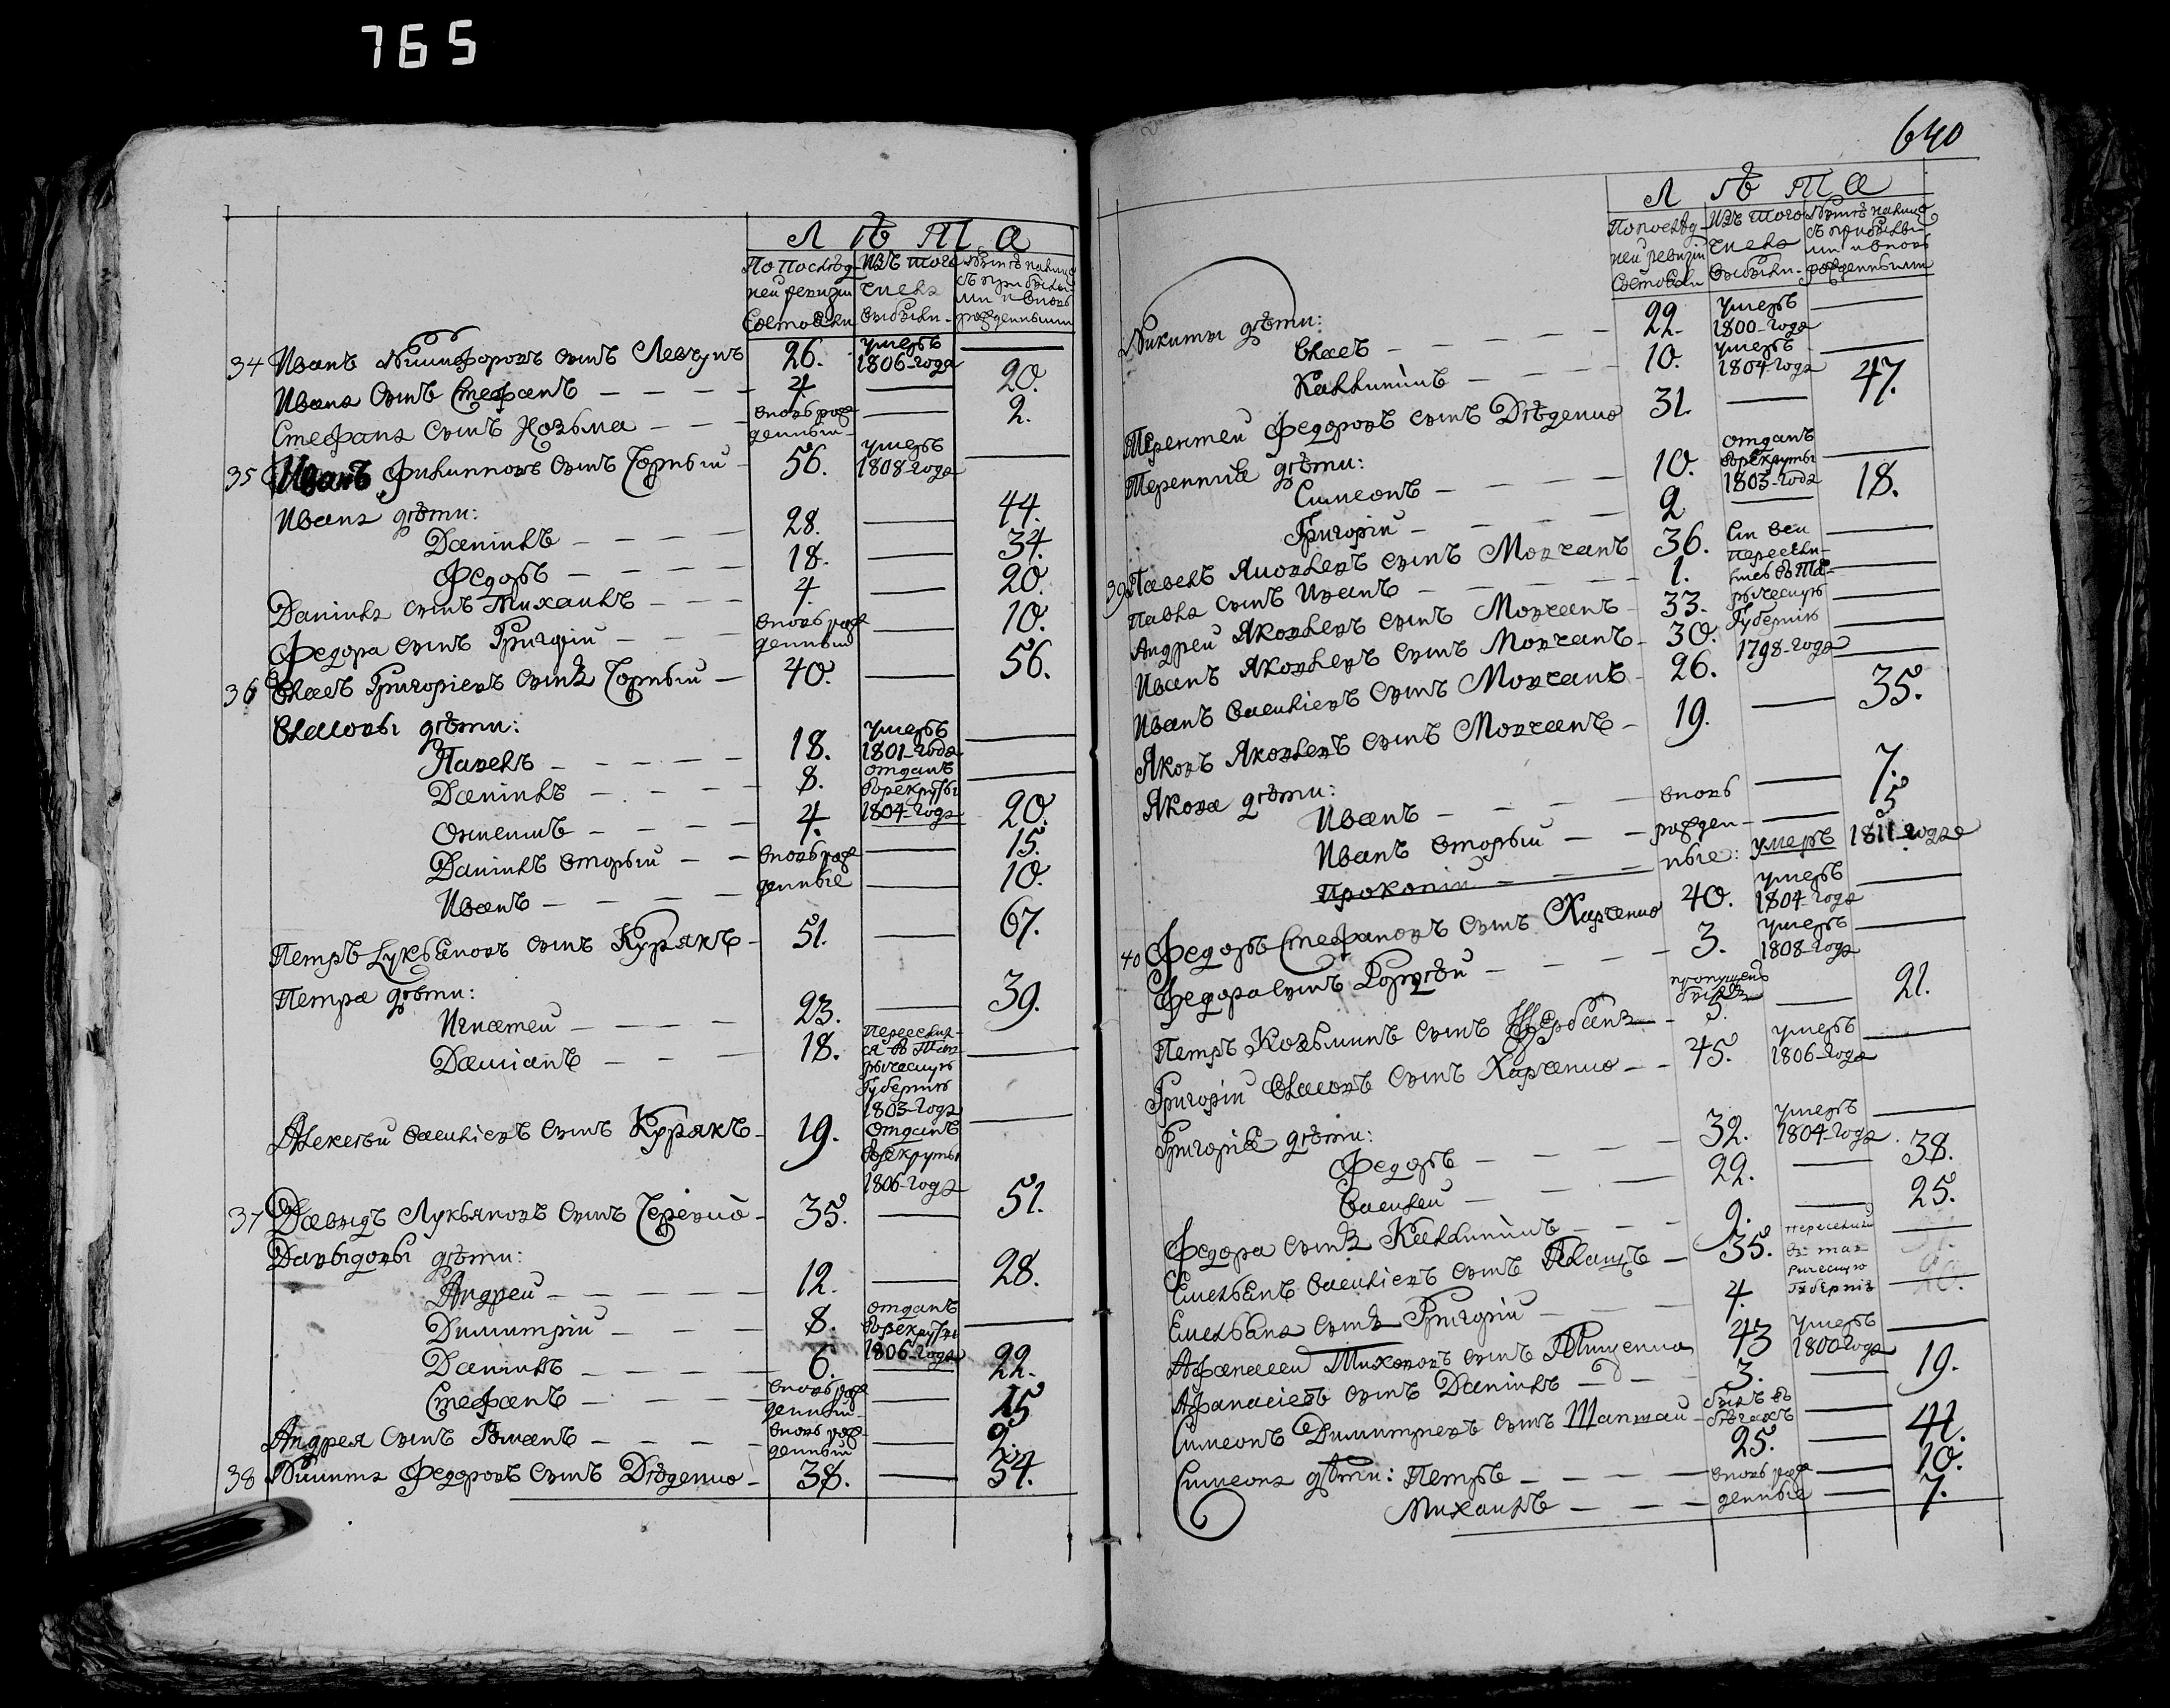 765
Л Ѣ Т А
По послѣд- Изъ того Нынѣ налицо
ней ревизіи числа съ прибылы-
состояли выбыли- ми и вновь
рожденными
34 Иванъ Никифоровъ сынъ Левчунъ 26. умеръ 1806-года —
Ивана сынъ Стефанъ 4. — 20.
Стефана сынъ Козьма вновь рожденный — 2.
35 Иванъ Филиповъ сынъ Чорный 56. умеръ 1808-года —
Ивана дѣти:
Данилъ 28. — 44.
Федоръ 18. — 34.
Данила сынъ Михаилъ 4. — 20.
Федора сынъ Григорій вновь рожденный — 10.
36 Власъ Григоріевъ сынъ Чорный 40. — 56.
Власовы дѣти:
Павелъ 18. умеръ 1801-года —
Данилъ 8. отданъ в рекруты 1804-года —
Онисимъ 4. — 20.
Данилъ вторый вновь рож — 15.
Иванъ денные — 10.
Петръ Лукьяновъ сынъ Курякъ 51. — 67.
Петра дѣти:
Игнатей 23. — 39.
Даміанъ 18. Переселил-
ся в Тав-
рическую
Губернію
1803-года —
Алексѣй Васильевъ сынъ Курякъ 19. отданъ
в рекруты
1806-года —
37 Давидъ Лукьяновъ сынъ 35. — 51.
Давыдовы дѣти:
Андрей 12. — 28.
Димитрій 8. отданъ в рекруты 1806-года —
Данилъ 6. — 22.
Стефанъ вновь рожденный — 15
Андрея сынъ вновь рожденный — 2.
38 Никита Федоровъ сынъ Дѣденко 38. — 54.
640
Л Ѣ Т А
По послѣд- Изъ того Нынѣ налицо
ней ревизіи числа съ прибылы-
ми и вновь
состояли выбыли- рожденными
Никиты дѣти:
Власъ 22. умеръ 1800-года —
Каллиникъ 10. умеръ 1804-года —
Терентей Федоровъ сынъ Дѣденко 31. — 47.
Терентія дѣти:
Симеонъ 10. отданъ в рекруты 1803-года —
Григорій 2. — 18.
39 Павелъ Яковлевъ сынъ Мовчанъ 36. Сіи всѣ —
Павла сынъ Иванъ 1. пересели- —
Андрей Яковлевъ сынъ Мовчанъ 33. лись в Тав- —
Иванъ Яковлевъ сынъ Мовчанъ 30. рическую Губернію —
Иванъ Васильевъ сынъ Мовчанъ 26. 1798-года —
Яковъ Яковлевъ сынъ Мовчанъ 19. — 35.
Якова дѣти:
Иванъ вновь — 7.
Иванъ вторый рожден- — 5
Прокопій ные: умеръ 1811-года
40 Федоръ Стефановъ сынъ Харченко 40. умеръ 1804-года —
Федора сынъ Гордѣй 3. умеръ 1808-года —
Петръ Козьминъ сынъ Щербакъ пропущенъ былъ 5. — 21.
Григорій Власовъ сынъ Харченко 45. умеръ 1806-года —
Григорія дѣти:
Федоръ 32. умеръ 1804-года —
Василей 22. — 38.
Федора сынъ Каллиникъ 9. — 25.
Емельянъ Васильевъ сынъ 35. переселился —
в тав
рическую
Емельяна сынъ Григорій 4. губернію —
Афанасей сынъ 43 умеръ 1800-года —
Афанасіевъ сынъ Данилъ 3. — 19.
Симеонъ Димитріевъ сынъ Шаптай былъ въ бѣгахъ 25. — 41.
Симеона дѣти: Петръ вновь рож — 10.
Михаилъ денные — 7.